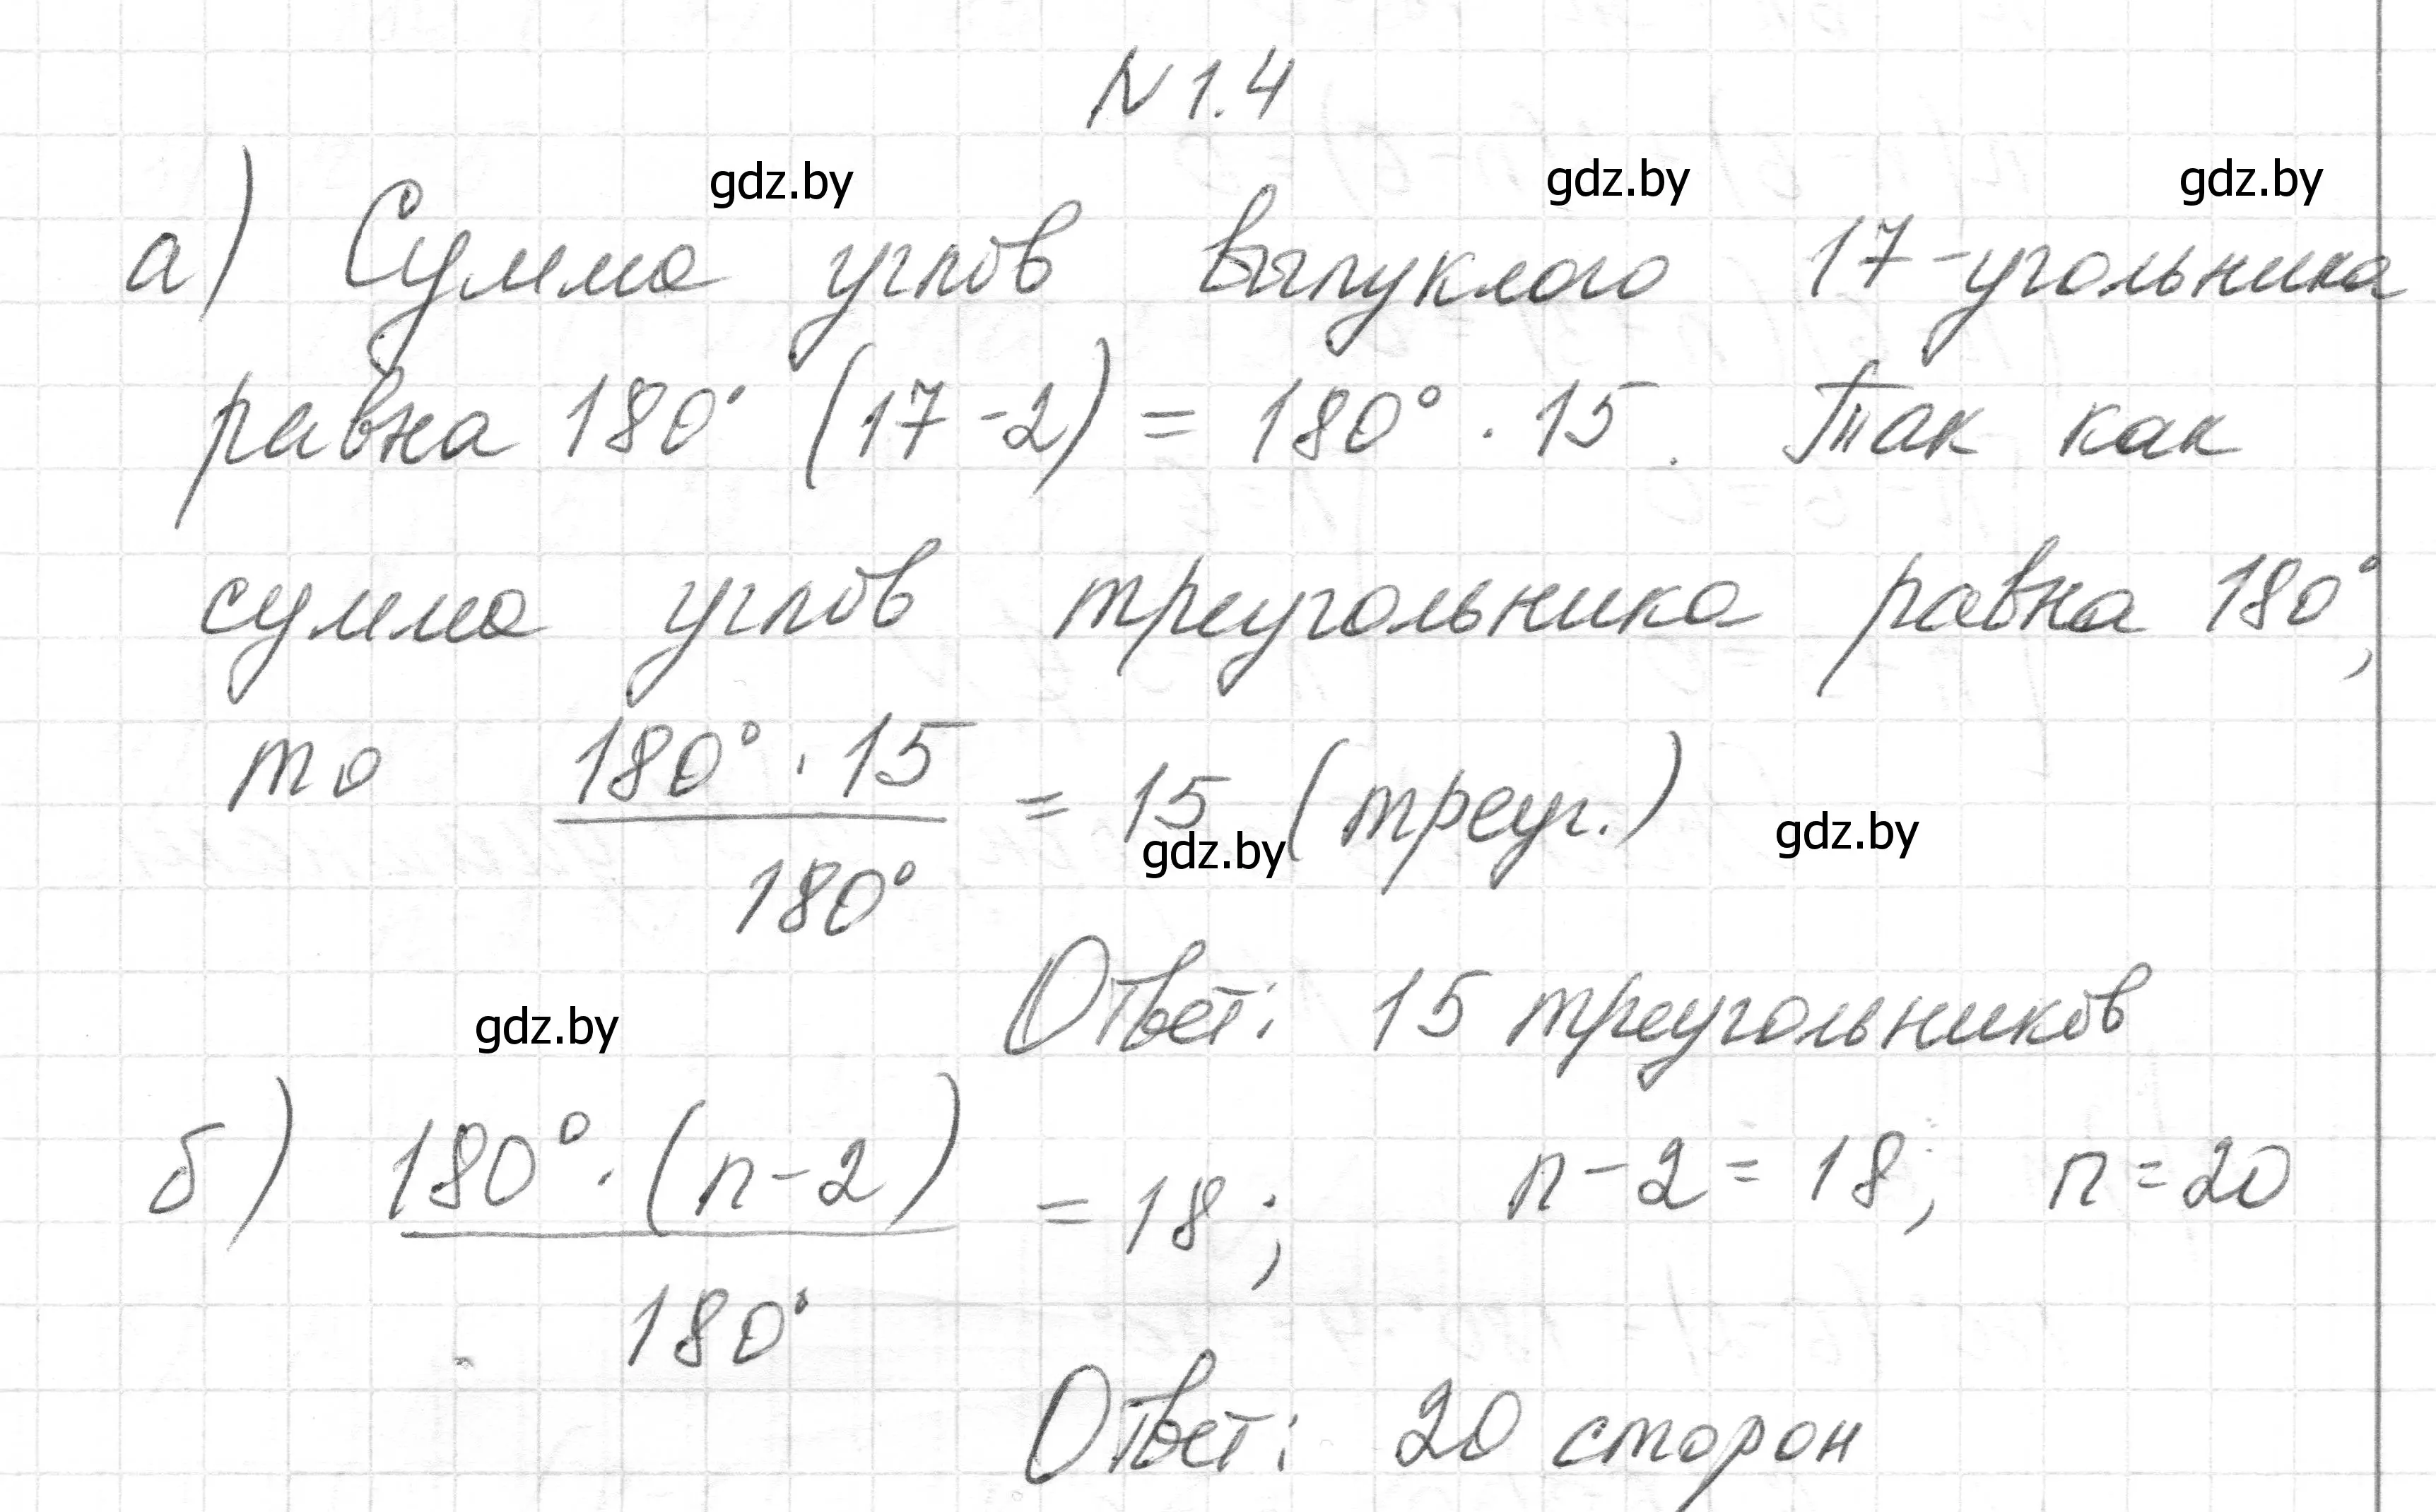 N 1.4
gdz.by gdz.by gdz.by
а) Сумма углов выпуклого 17-угольника
равна 180° (17-2) = 180° · 15. Так как
сумма углов треугольника равна 180°,
то 180° · 15 / 180° = 15 (треуг.)
gdz.by gdz.by
Ответ: 15 треугольников
gdz.by
б) 180° · (n-2) / 180° = 18; n-2 = 18, n = 20
Ответ: 20 сторон